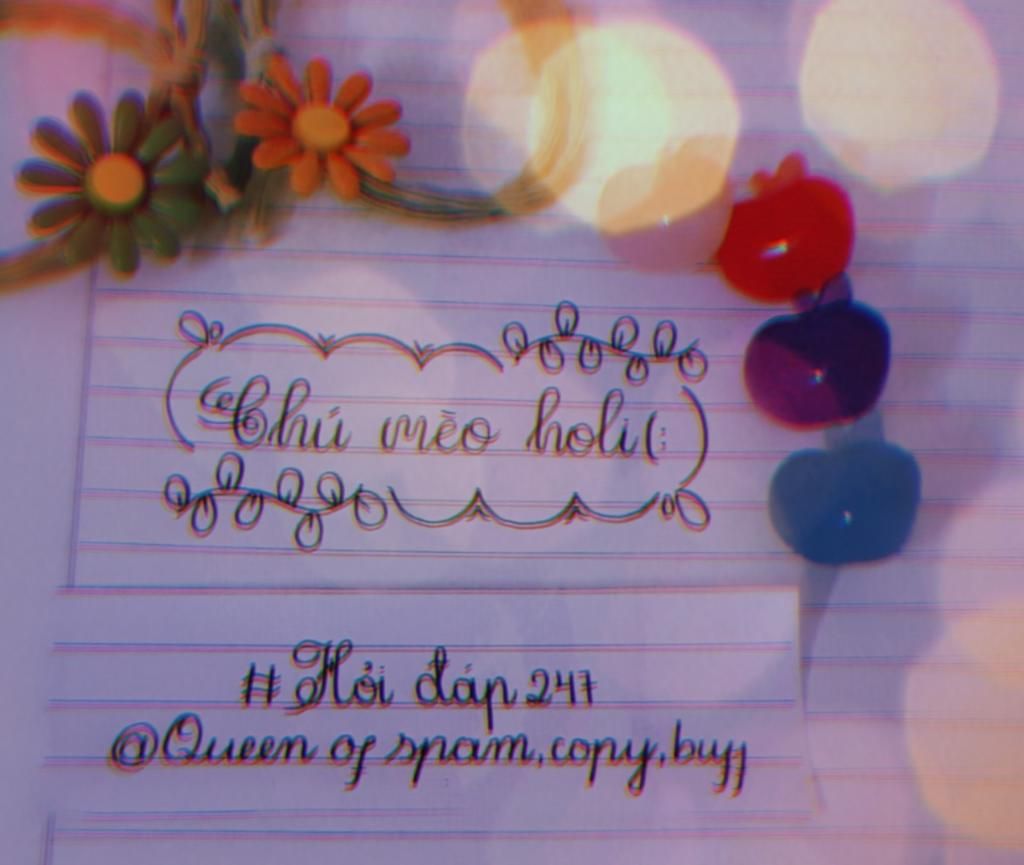 Chú mèo holi(:
#Hỏi đáp 247
@Queen of spam,copy,buff